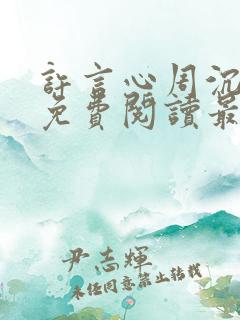 許言心周沉
免費閱讀最
尹志輝
未經同意禁止轉載